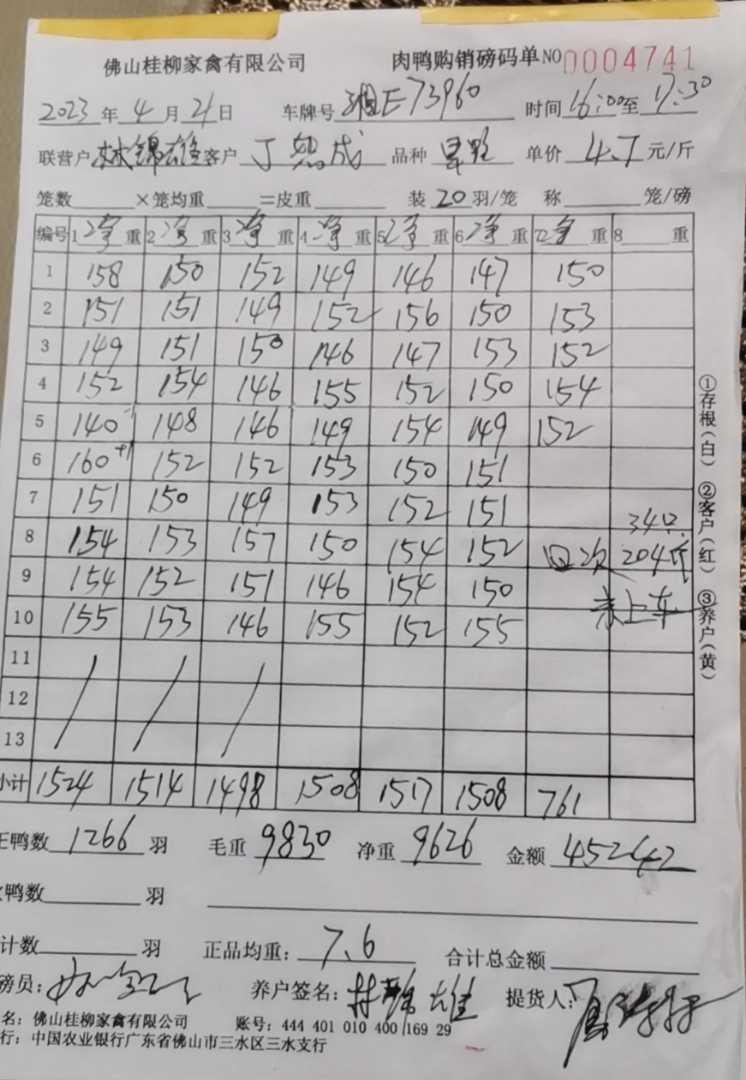 佛山桂柳家禽有限公司 肉鸭购销磅码单 NO 0004741
2023 年 4 月 21 日 车牌号 湘E73960 时间 16:00 至 17:30
联营户 林锦雄 客户 丁 成 品种 单价 4.7 元/斤
笼数 ×笼均重 =皮重 装 20 羽/笼 称 笼/磅
编号 1 净 重 2 净 重 3 净 重 4 净 重 5 净 重 6 净 重 7 净 重 8 重
1 158 150 152 149 146 147 150
2 151 151 149 152 156 150 153
3 149 151 150 146 147 153 152
4 152 154 146 155 152 150 154
5 140 148 146 149 154 149 152
6 160 +1 152 152 153 150 151
7 151 150 149 153 152 151
34只
8 154 153 157 150 154 152 回次 204斤
9 154 152 151 146 154 150 未上车
10 155 153 146 155 152 155
11
12
13
小计 1524 1514 1498 1508 1517 1508 761
正鸭数 1266 羽 毛重 9830 净重 9626 金额 45242
鸭数 羽
计数 羽 正品均重: 7.6 合计总金额
磅员: 养户签名: 林锦雄 提货人:
名: 佛山桂柳家禽有限公司 账号: 444 401 010 400 169 29
行: 中国农业银行广东省佛山市三水区三水支行
①存根(白) ②客户(红) ③养户(黄)